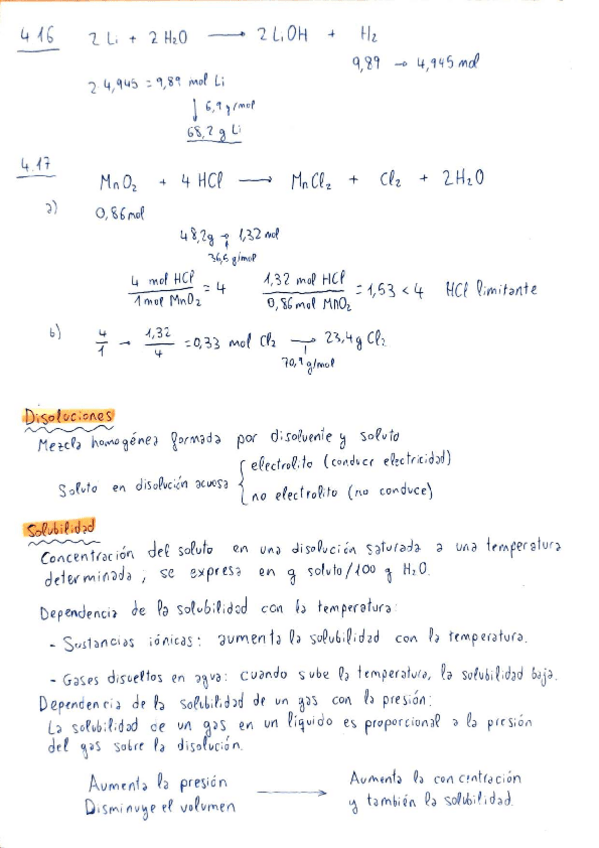 4.16 2 Li + 2 H₂O → 2 LiOH + H₂
9,89 → 4,945 mol
2·4,945 = 9,89 mol Li
↓ 6,9 g/mol
68,2 g Li
4.17
MnO₂ + 4 HCl → MnCl₂ + Cl₂ + 2 H₂O
a) 0,86 mol
48,2g → 1,32 mol
36,5 g/mol
4 mol HCl / 1 mol MnO₂ = 4 1,32 mol HCl / 0,86 mol MnO₂ = 1,53 < 4 HCl limitante
b) 4/1 → 1,32/4 = 0,33 mol Cl₂ → 23,4 g Cl₂
70,9 g/mol
Disoluciones
Mezcla homogénea formada por disolvente y soluto
Soluto en disolución acuosa { electrolito (conducir electricidad)
no electrolito (no conduce)
Solubilidad
Concentración del soluto en una disolución saturada a una temperatura
determinada; se expresa en g soluto/100 g H₂O.
Dependencia de la solubilidad con la temperatura:
- Sustancias iónicas: aumenta la solubilidad con la temperatura.
- Gases disueltos en agua: cuando sube la temperatura, la solubilidad baja.
Dependencia de la solubilidad de un gas con la presión:
La solubilidad de un gas en un líquido es proporcional a la presión
del gas sobre la disolución.
Aumenta la presión → Aumenta la concentración
Disminuye el volumen y también la solubilidad.